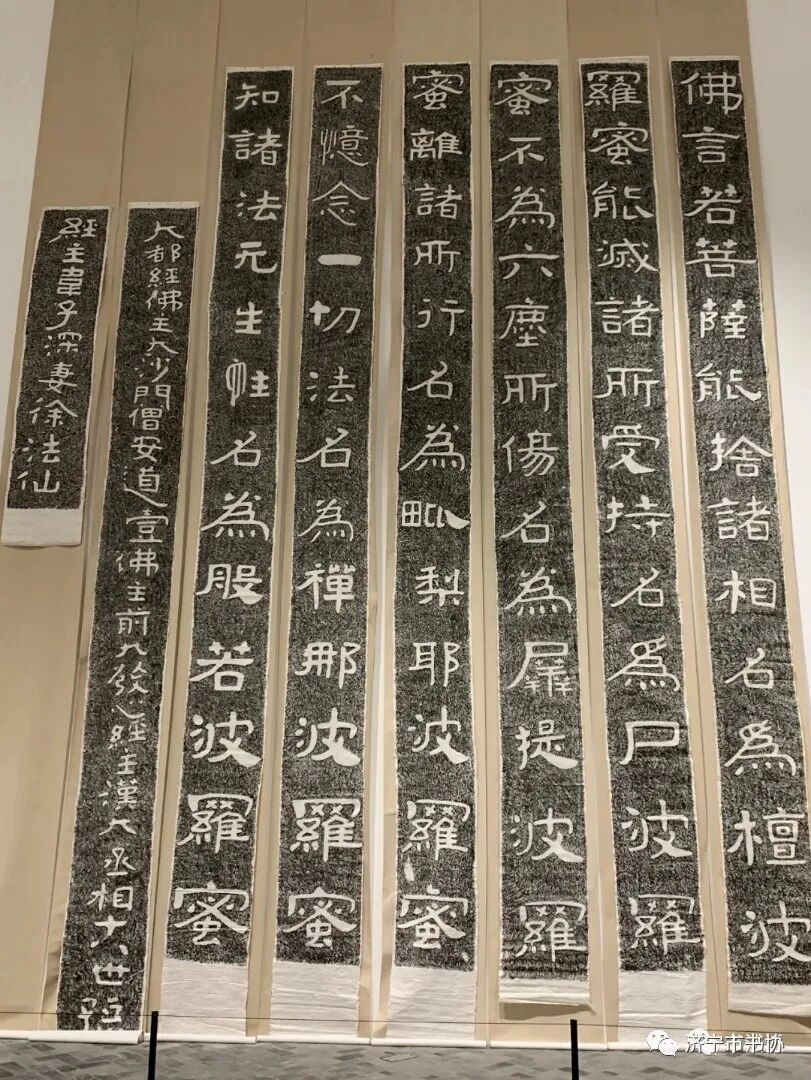 佛言若菩薩能捨諸相名為檀波
羅蜜能滅諸所受持名為尸波羅
蜜不為六塵所傷名為羼提波羅
蜜離諸所行名為毗梨耶波羅蜜
不憶念一切法名為禪那波羅蜜
知諸法无生性名為般若波羅蜜
大都經佛主大沙門僧安道壹佛主前大發心經主漢大丞相十六世
經主韋子深妻徐法仙
济宁市书协